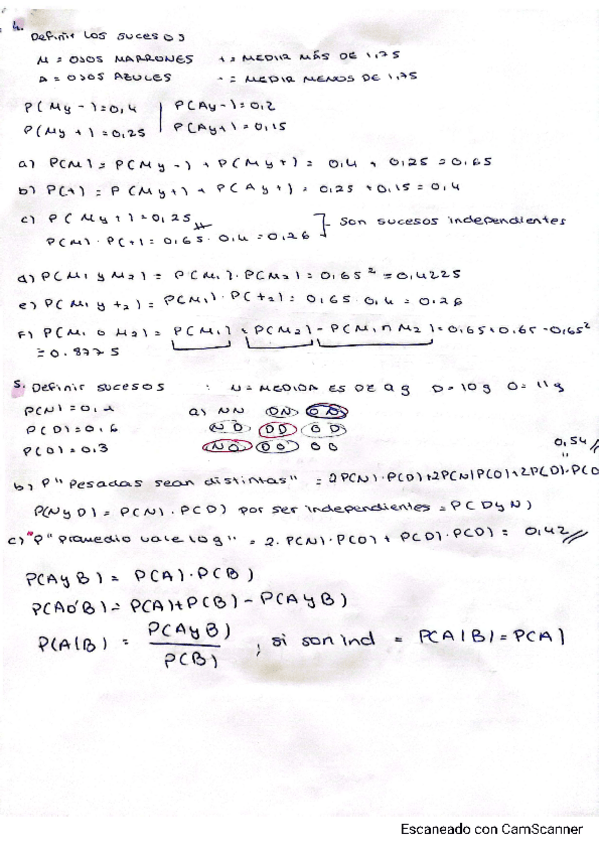 4.
Definir los sucesos
M = OJOS MARRONES + = MEDIR MÁS DE 1,75
A = OJOS AZULES - = MEDIR MENOS DE 1,75
P(M y -) = 0,4 P(A y -) = 0,2
P(M y +) = 0,25 P(A y +) = 0,15
a) P(M) = P(M y -) + P(M y +) = 0,4 + 0,25 = 0,65
b) P(+) = P(M y +) + P(A y +) = 0,25 + 0,15 = 0,4
c) P(M y +) = 0,25
P(M) · P(+) = 0,65 · 0,4 = 0,26
Son sucesos independientes
d) P(M1 y M2) = P(M1) · P(M2) = 0,65² = 0,4225
e) P(M1 y +2) = P(M1) · P(+2) = 0,65 · 0,4 = 0,26
F) P(M1 o M2) = P(M1) + P(M2) - P(M1 ∩ M2) = 0,65 + 0,65 - 0,65²
= 0.8775
5. Definir sucesos : N = MEDIDA ES DE 9 g D = 10 g O = 11 g
P(N) = 0,1 a) NN DN ON
P(D) = 0,6 ND DD OD
P(O) = 0,3 NO DO OO
0,54
b) P "Pesadas sean distintas" = 2P(N) · P(D) + 2P(N)P(O) + 2P(D) · P(O
P(N y D) = P(N) · P(D) por ser independientes = P(D y N)
c) "P" Promedio vale 10g" = 2 · P(N) · P(O) + P(D) · P(D) = 0,42
P(A y B) = P(A) · P(B)
P(A o B) = P(A) + P(B) - P(A y B)
P(A|B) = P(A y B) / P(B) , si son ind = P(A|B) = P(A)
Escaneado con CamScanner